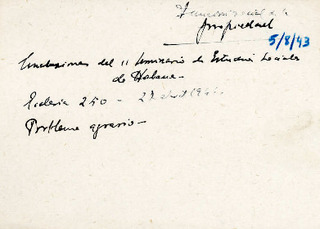 propiedad
5/8/43
Conclusiones del II Seminario de Estudios Sociales
de Habana -
Ecclesia 250 - 27 abril 194
Problema agrario -